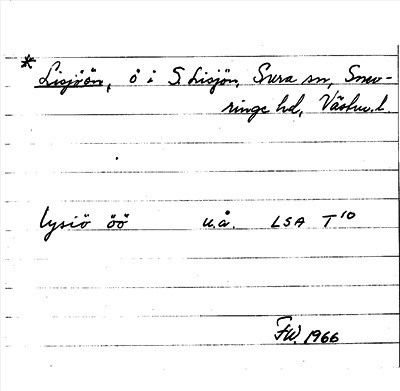 * Lisjöön, ö i S. Lisjön, Sura sn, Snev-
ringe hd, Västm. l.
lysiö öö u.å. LSA T 10
FW. 1966